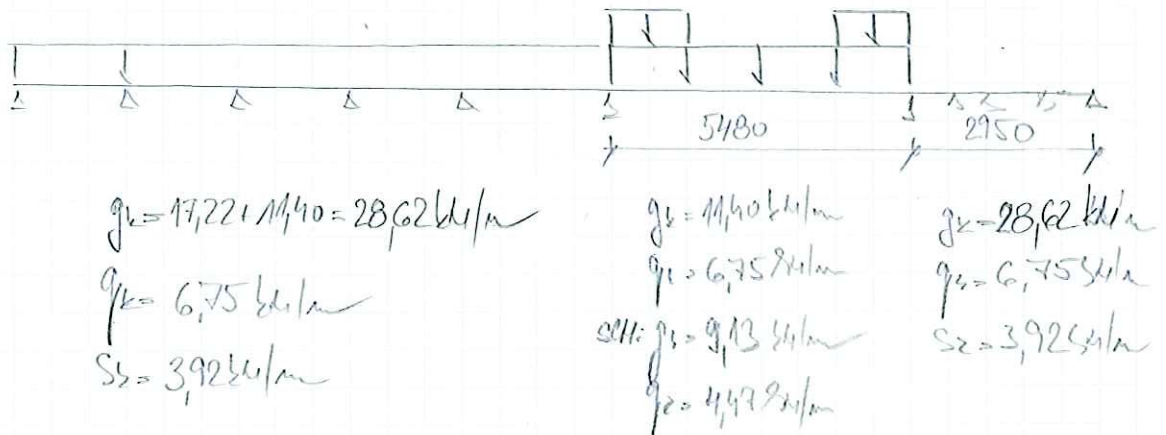 5480 2950
gk=17,22+11,40=28,62kN/m
qk=6,75kN/m
Sk=3,92kN/m
gk=11,40kN/m
qk=6,75kN/m
gk=9,13kN/m
qk=4,47kN/m
gk=28,62kN/m
qk=6,75kN/m
Sk=3,92kN/m